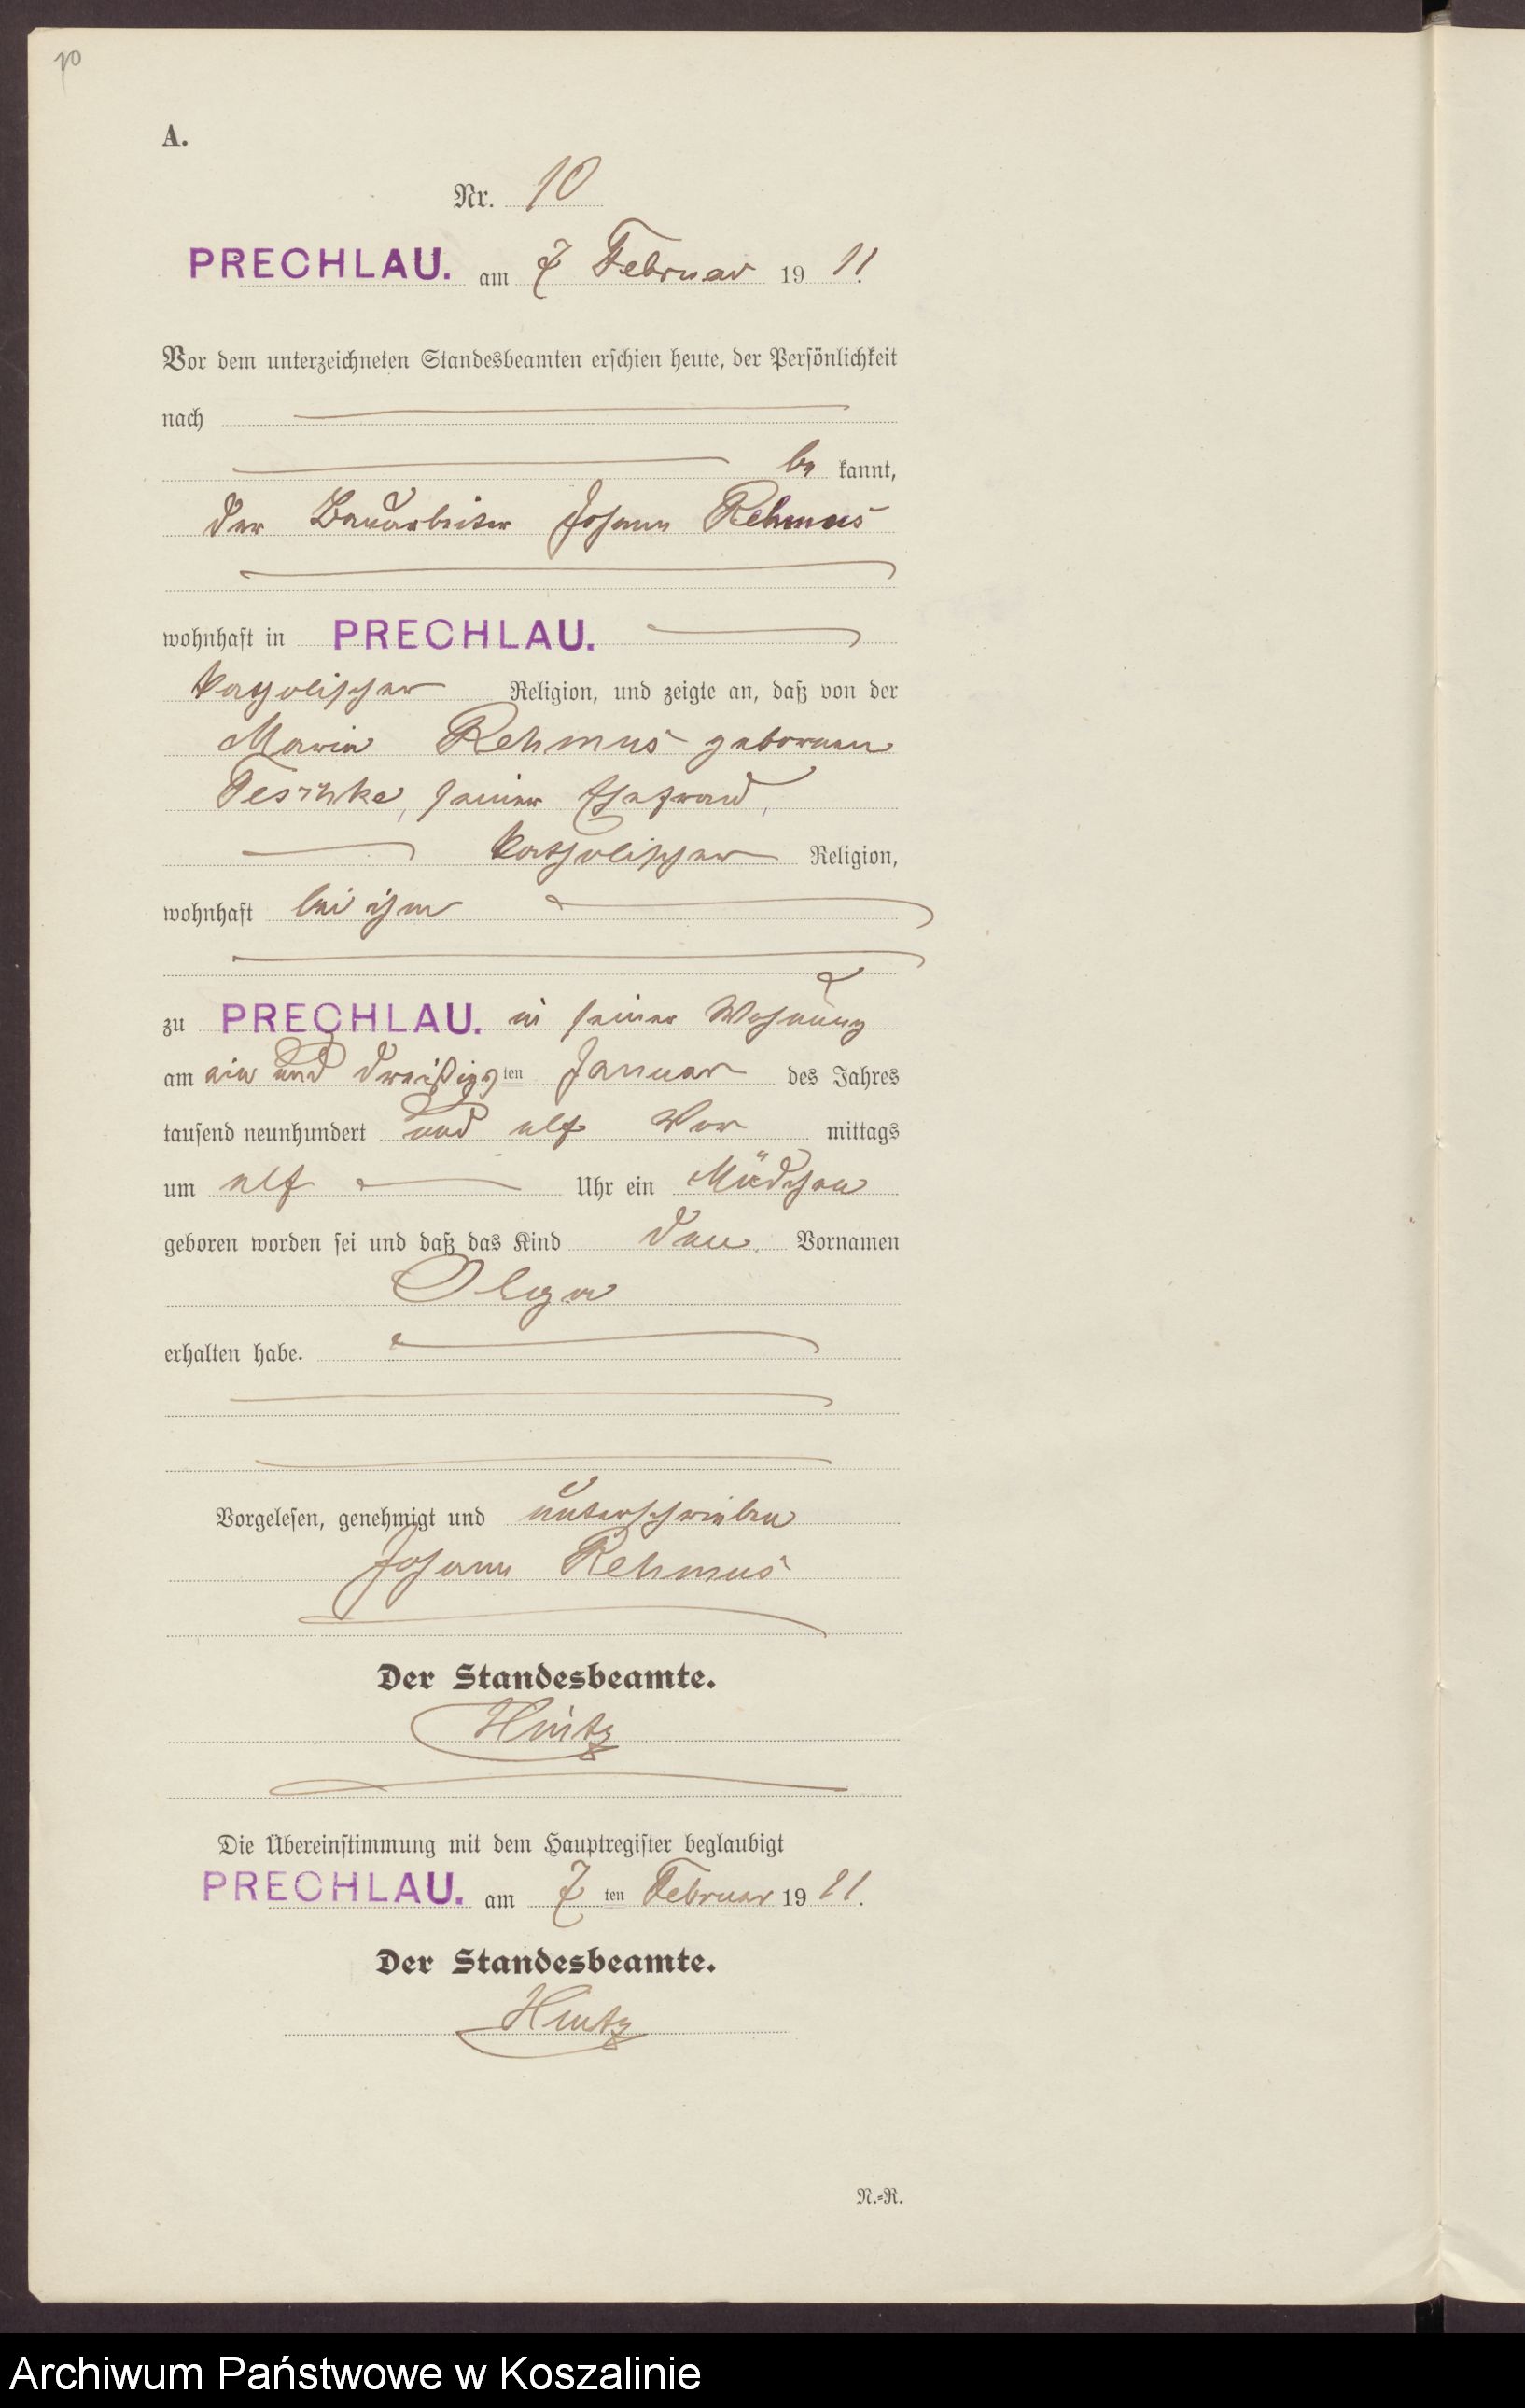 10
A.
Nr. 10
PRECHLAU. am 7 Februar 19 11.
Vor dem unterzeichneten Standesbeamten erschien heute, der Persönlichkeit
nach
be kannt,
der Bauarbeiter Johann Rehmus
wohnhaft in PRECHLAU.
katholischer Religion, und zeigte an, daß von der
Maria Rehmus geborenen
Teschke, seiner Ehefrau,
katholischer Religion,
wohnhaft bei ihm
zu PRECHLAU. in seiner Wohnung
am ein und dreißigsten Januar des Jahres
tausend neunhundert und elf Vor mittags
um elf Uhr ein Mädchen
geboren worden sei und daß das Kind den Vornamen
Olga
erhalten habe.
Vorgelesen, genehmigt und unterschrieben
Johann Rehmus
Der Standesbeamte.
Hintz
Die Übereinstimmung mit dem Hauptregister beglaubigt
PRECHLAU. am 7 ten Februar 19 11.
Der Standesbeamte.
Hintz
N.=R.
Archiwum Państwowe w Koszalinie